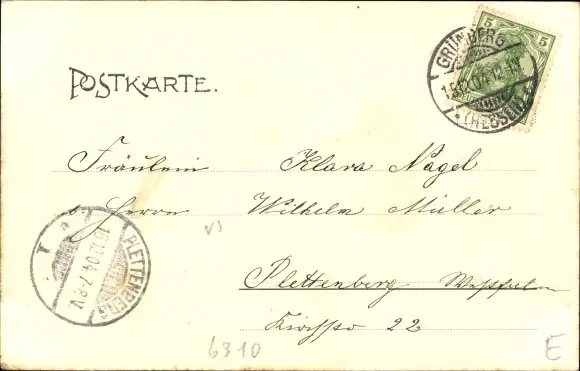 POSTKARTE.
5 5
GRÜNBERG
15.12.04.12-1N.
* (HESSEN)
Fräulein Klara Nagel
b. Herrn Wilhelm Müller
Plettenberg Westfalen
Kirchstr 22
PLETTENBERG
16.12.04.7-8V.
6310
E